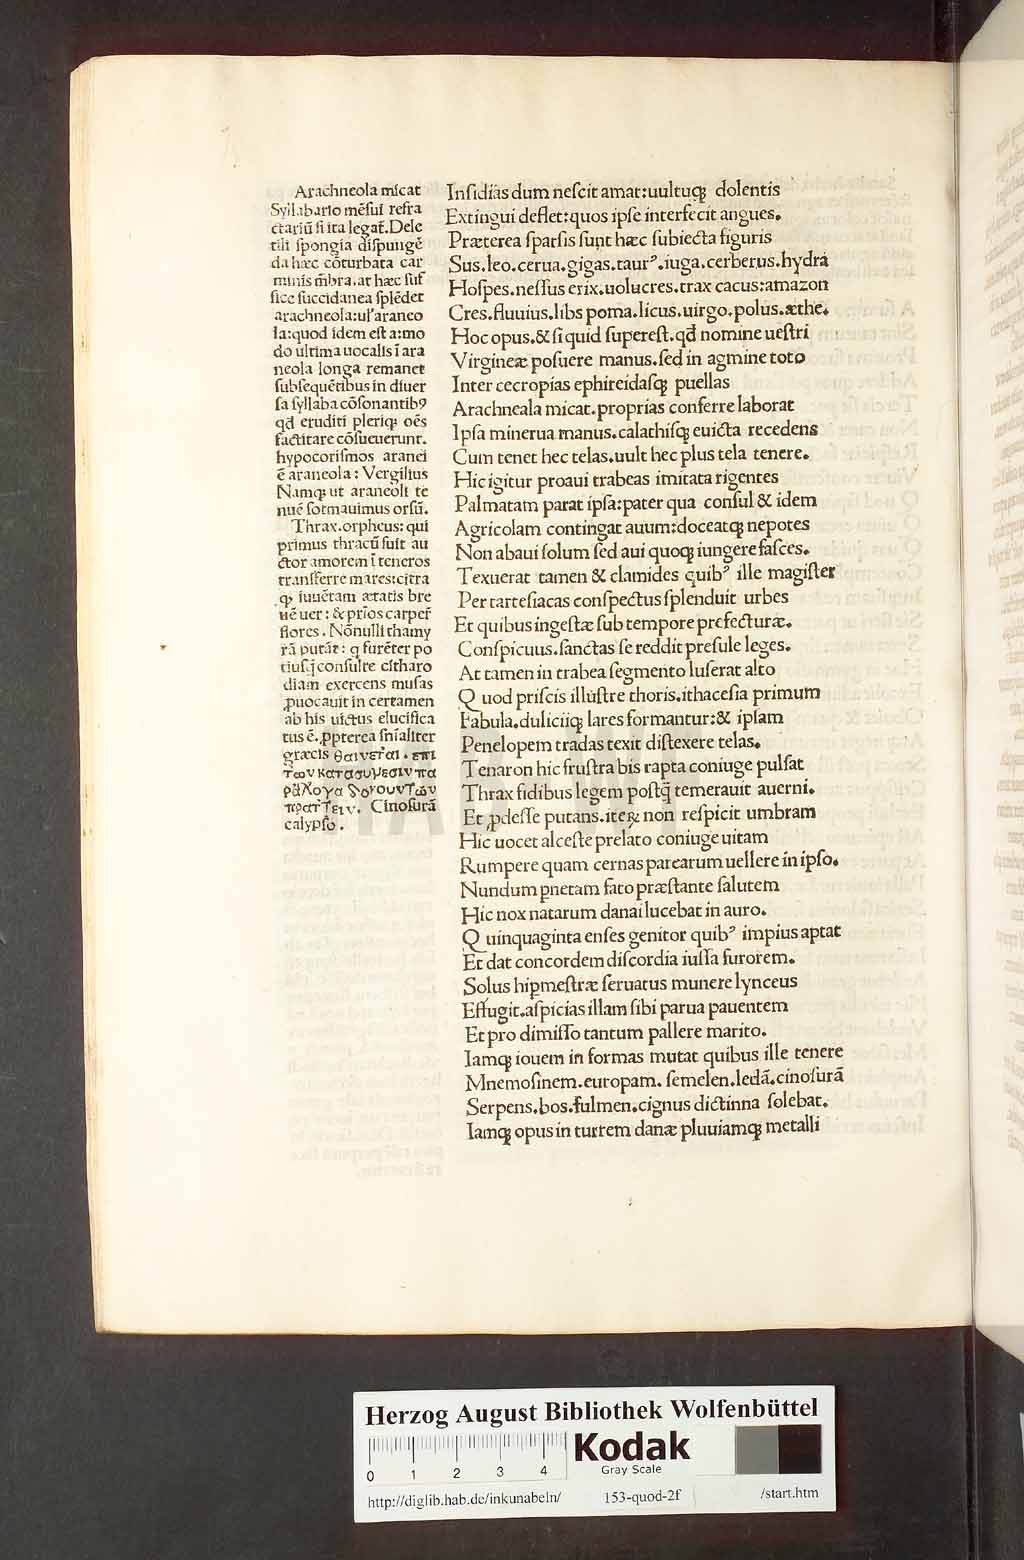 Arachneola micat
Syllabario mēsui refra
ctariū si ita legat. Dele
tili spongia dispungē
da hæc cōturbata car
minis mēbra. at hæc suf
fice succidanea splēdet
arachneola: ul' araneo
la: quod idem est a: mo
do ultima uocalis ī ara
neola longa remanet
subsequētibus in diuer
sa syllaba cōsonantibꝰ
qd eruditi pleriqꝫ oēs
factitare cōsueuerunt.
hypocorismos aranei
ē araneola: Vergilius
Namqꝫ ut araneoli te
nuē formauimus orsū.
Thrax. orpheus: qui
primus thracū fuit au
ctor amorem ī teneros
transferre mares: citra
qꝫ iuuētam ætatis bre
uē uer: & prīos carper̄
flores. Nōnulli thamy
rā putāt: q furēter po
tiusq̄ consulte citharo
diam exercens musas
ꝓuocauit in certamen
ab his uictus elucifica
tus ē. ꝓpterea sn̄ialiter
græcis θαινεται. επι
των κατασυνεσιν πα
ραλογα δρουντων
πραττειν. Cinosurā
calypso.
Insidias dum nescit amat: uultuqꝫ dolentis
Extingui deflet: quos ipse interfecit angues.
Præterea sparsis sunt hæc subiecta figuris
Sus. leo. cerua. gigas. taurꝰ. iuga. cerberus. hydra
Hospes. nessus erix. uolucres. trax cacus: amazon
Cres. fluuius. libs poma. licus. uirgo. polus. æthe.
Hoc opus. & si quid superest. qd nomine uestri
Virgineæ posuere manus. sed in agmine toto
Inter cecropias ephireidasqꝫ puellas
Arachneala micat. proprias conferre laborat
Ipsa minerua manus. calathisqꝫ euicta recedens
Cum tenet hec telas. uult hec plus tela tenere.
Hic igitur proaui trabeas imitata rigentes
Palmatam parat ipsa: pater qua consul & idem
Agricolam contingat auum: doceatqꝫ nepotes
Non abaui solum sed aui quoqꝫ iungere fasces.
Texuerat tamen & clamides quibꝰ ille magister
Per tartesiacas conspectus splenduit urbes
Et quibus ingestæ sub tempore prefecturæ.
Conspicuus. sanctas se reddit presule leges.
At tamen in trabea segmento luserat alto
Quod priscis illustre thoris. ithacesia primum
Fabula. duliciiqꝫ lares formantur: & ipsam
Penelopem tradas texit distexere telas.
Tenaron hic frustra bis rapta coniuge pulsat
Thrax fidibus legem postq̄ temerauit auerni.
Et ꝓdesse putans. iteꝝ non respicit umbram
Hic uocet alceste prelato coniuge uitam
Rumpere quam cernas parearum uellere in ipso.
Nundum pnetam fato præstante salutem
Hic nox natarum danai lucebat in auro.
Quinquaginta enses genitor quibꝰ impius aptat
Et dat concordem discordia iussa furorem.
Solus hipmestræ seruatus munere lynceus
Effugit. aspicias illam sibi parua pauentem
Et pro dimisso tantum pallere marito.
Iamqꝫ iouem in formas mutat quibus ille tenere
Mnemosinem. europam. semelen. ledā. cinosurā
Serpens. bos. fulmen. cignus dictinna solebat.
Iamqꝫ opus in turrem danæ pluuiamqꝫ metalli
HAB-WF
Herzog August Bibliothek Wolfenbüttel
0 1 2 3 4
Kodak
Gray Scale
http://diglib.hab.de/inkunabeln/ 153-quod-2f /start.htm